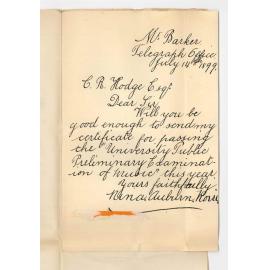 Mt. Barker
Telegraph Office
July 14th 1899.
C. R. Hodge Esqr
Dear Sir
Will you be
good enough to send my
certificate for passing
the "University Public
Preliminary Examinat-
ion of Music" this year.
Yours faithfully.
Nina Auburn